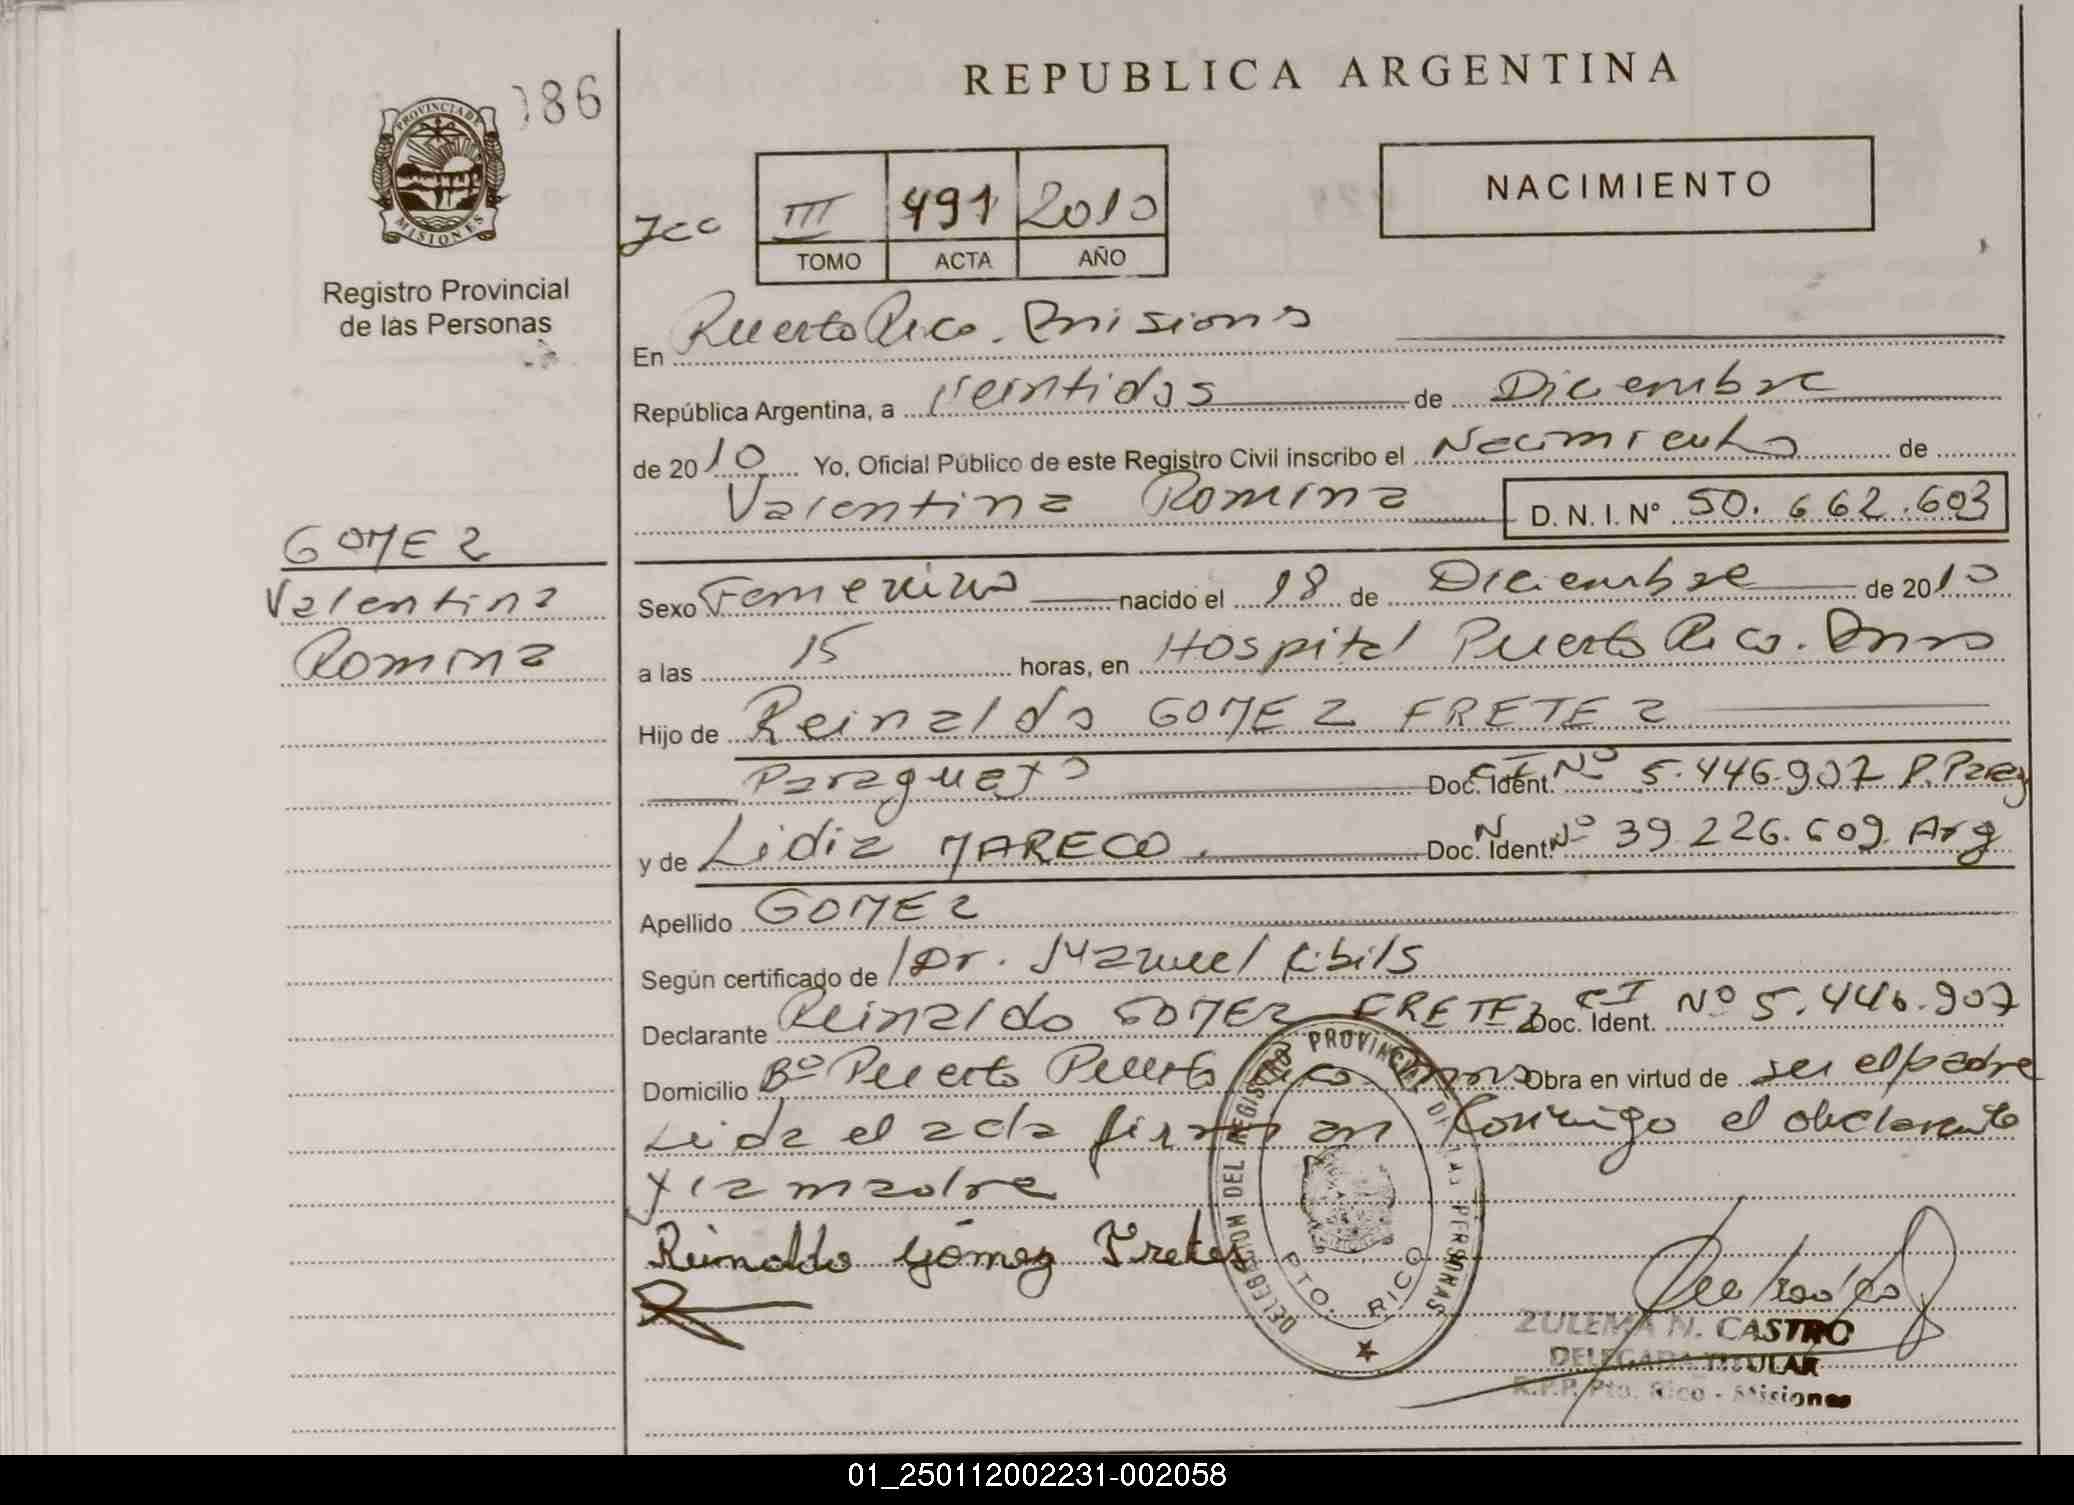 REPUBLICA ARGENTINA
PROVINCIA DE MISIONES
086
Registro Provincial
de las Personas
NACIMIENTO
III 491 2010
TOMO ACTA AÑO
En Puerto Rico. Misiones
República Argentina, a Veintidos de Diciembre
de 2010 Yo, Oficial Público de este Registro Civil inscribo el Nacimiento de
Valentina Romina D. N. I. N° 50.662.603
GOMEZ
Valentina
Romina
Sexo Femenino nacido el 18 de Diciembre de 2010
a las 15 horas, en Hospital Puerto Rico. Mnes
Hijo de Reinaldo GOMEZ FRETEZ
Paraguayo Doc. Ident. CI Nº 5.446.907 P. Parag
y de Lidia MARECO. Doc. N Ident. Nº 39 226.609 Arg
Apellido GOMEZ
Según certificado de Dr. Manuel
Declarante Reinaldo GOMEZ FRETEZ Doc. Ident. CI Nº 5.446.907
Domicilio Bº Puerto Puerto Rico Mnes Obra en virtud de ser el padre
Leida el acta firman conmigo el declarante
y la madre
Reinaldo Gómez Fretes
DELEGACION DEL REGISTRO PROVINCIAL DE LAS PERSONAS
PTO. RICO
ZULEMA N. CASTRO
DELEGADA TITULAR
R.P.P. Pto. Rico - Misiones
01_250112002231-002058